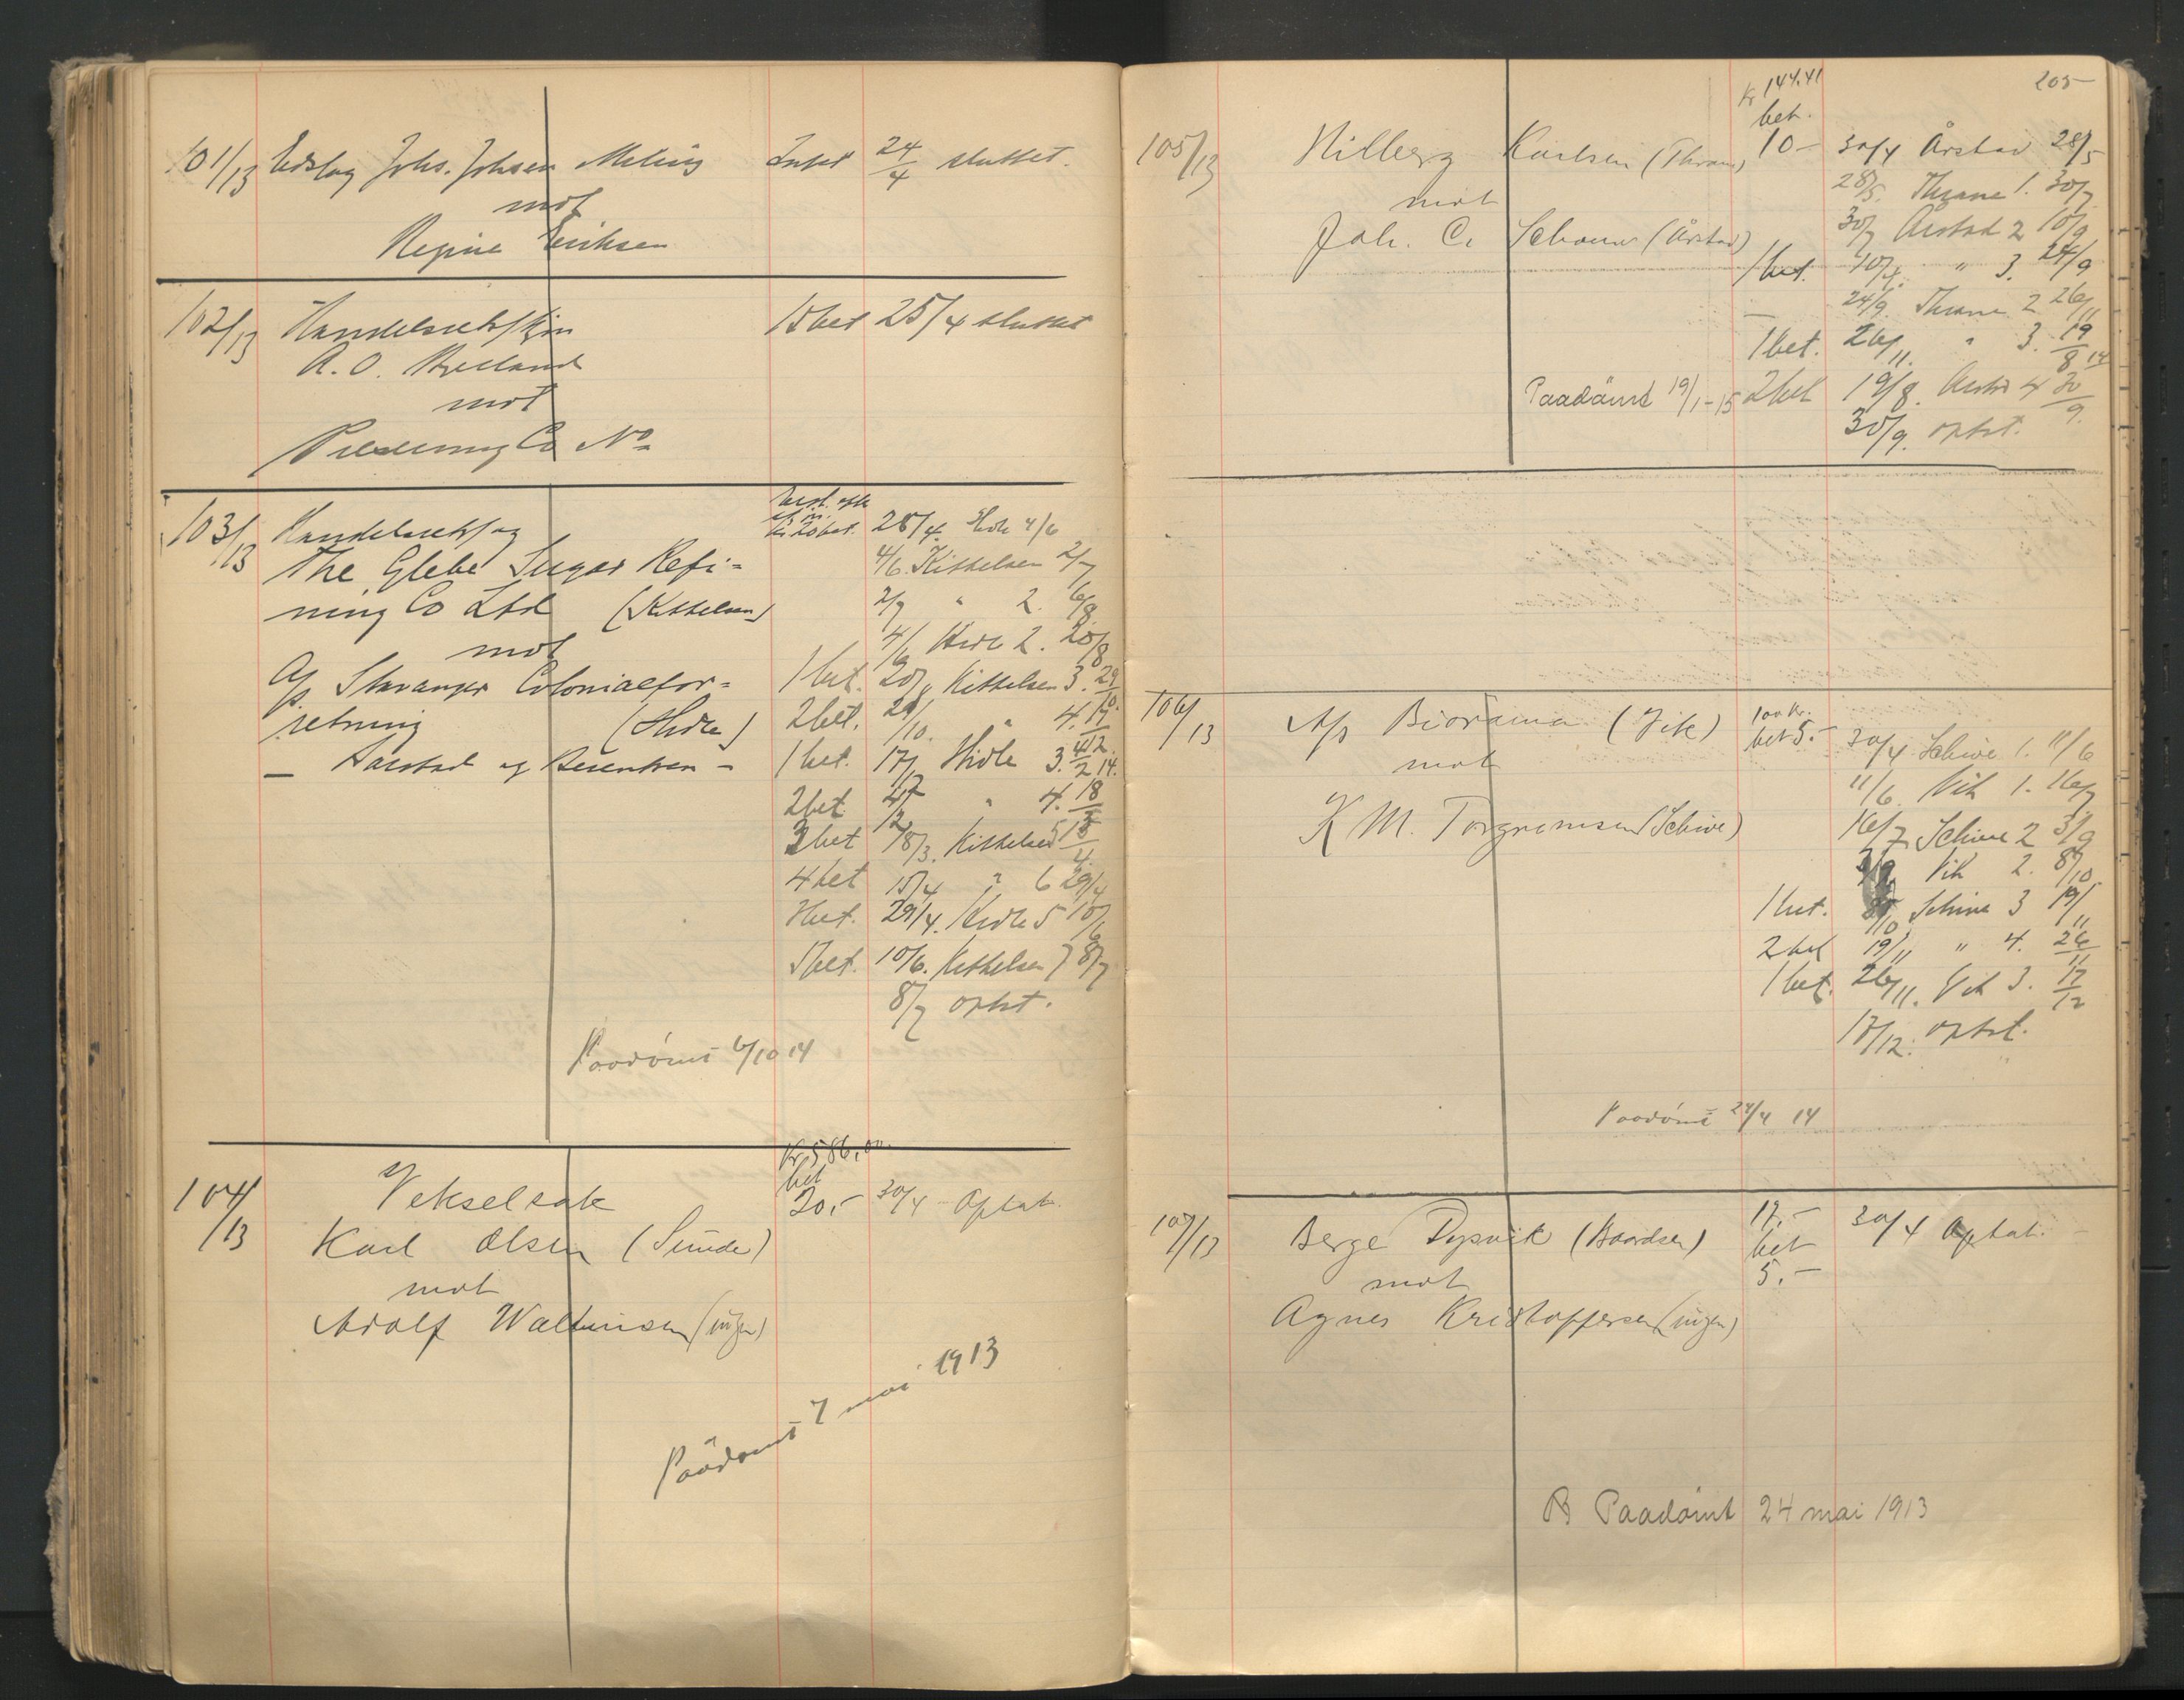 101/13 Utslag Johs. Johsen Meling 24/4 sluttet.
mot
Regine Eriksen
102/13 15 bet 25/4 sluttet
A. O.
mot
Co No
103/13 28/4 Hidle 4/6
The Glebe Sugar Refi=
ning Co Ltd (Kittelsen)
mot
A/s Stavanger Colonialfor=
retning (Hidle)
4/6. Kittelsen 2/7
2/7 " 2. 6/8
Hidle 2. 20/8
1 bet. 20/8 Kittelsen 3. 29/10.
2 bet. 29/10. " 4. 17/12
1 bet. 17/12 Hidle 3. 4/2 14.
2 bet 4/2 " 4. 18/3
3 bet 18/3. Kittelsen 5 15/4.
4 bet 15/4 " 6 29/4
29/4. Hidle 5 10/6
10/6. Kittelsen 7 8/7
8/7 optat.
Paadömt 6/10 14
104/13 Vekselsak
Kr 586,00.
bet
20,- 30/4 Optat.
Karl Olsen (Sunde)
mot
Adolf Waltinsen (ingen)
Paadömt 7 mai 1913
205
105/13 Hilberg Karlsen (Thrane)
Kr 144.41
bet.
10- 30/4 Årstad 28/5
mot
Joh. C. Schouw (Årstad)
28/5. Thrane 1. 30/7
30/7 Årstad 2 10/9
1 bet. 10/9. " 3. 24/9
24/9. Thrane 2 26/11
1 bet. 26/11. " 3. 19/8 14
Paadömt 19/1-15 2 bet 19/8. Årstad 4 30/9.
30/9. optat.
106/13 A/s Biorama (Vik)
100 Kr.
bet 5.- 30/4 Schive 1. 11/6
mot
K M. Torgrimsen (Schive)
11/6. Vik 1. 16/7
16/7 Schive 2 3/9
3/9 Vik 2. 8/10
1 bet. 8/10 Schive 3 19/11
2 bet 19/11 " 4. 26/11
1 bet. 26/11. Vik 3. 17/12
17/12. optat.
Paadömt 24/4 14
107/13 Berge Dysvik (Baardsen)
17.-
bet
5.-
30/4 Optat.
mot
Agnes Kristoffersen (ingen)
Paadömt 24 mai 1913